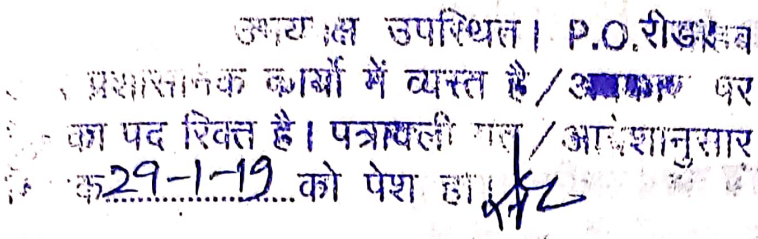 उभयपक्ष उपस्थित। P.O.रीडर
प्रशासनिक कार्यो में व्यस्त है/अवकाश पर
का पद रिक्त है। पत्रावली गत/आदेशानुसार
क 29-1-19 को पेश हो।